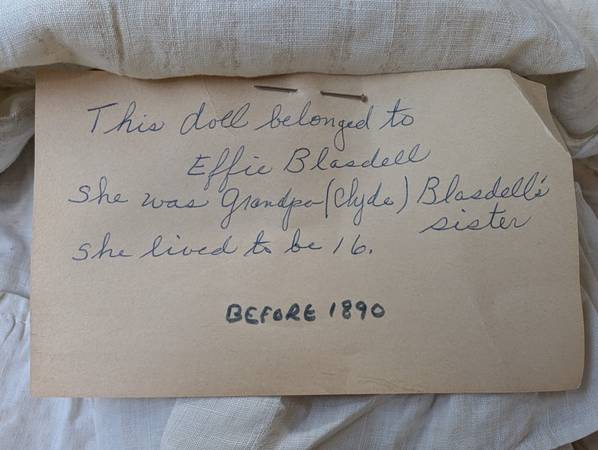 This doll belonged to
Effie Blasdell
She was Grandpa (Clyde) Blasdell's
sister
she lived to be 16.
BEFORE 1890